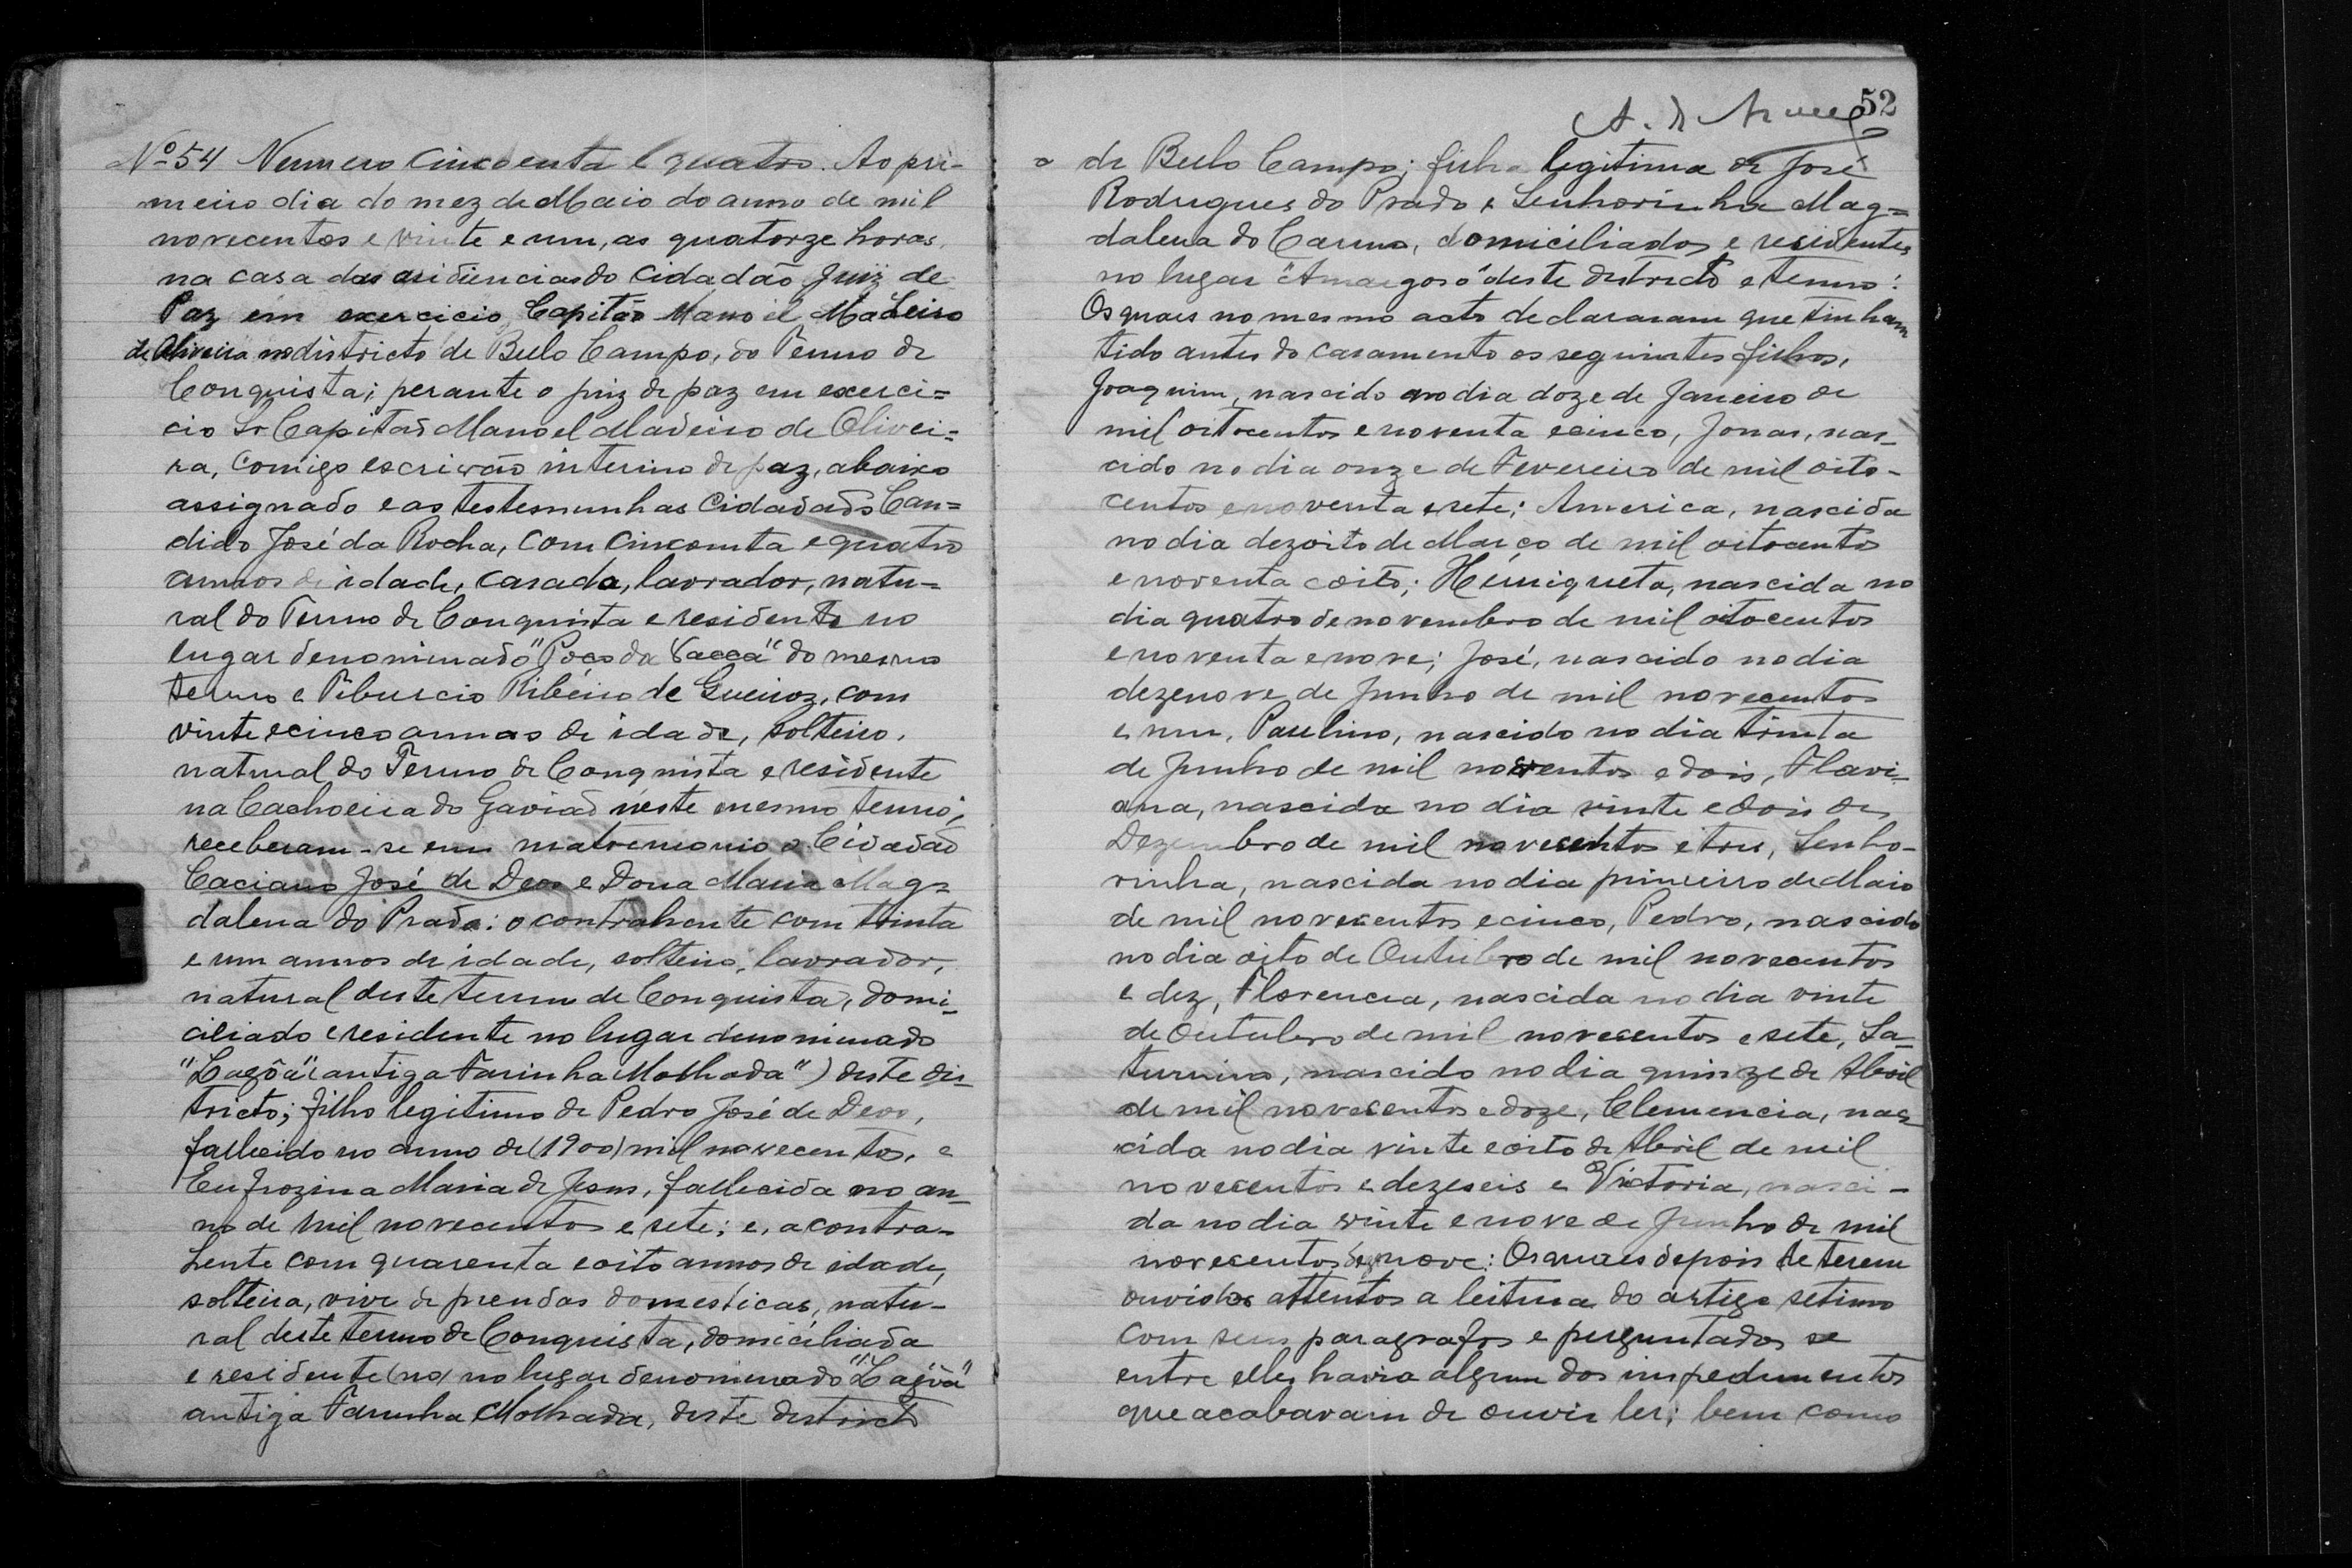 Nº 54 Numero cincoenta e quatro. Ao pri-
meiro dia do mez de Maio do anno de mil
novecentos e vinte e um, as quatorze horas,
na casa das residencias do cidadão Juiz de
Paz em exercicio Capitão Manoel Madeiro
de Oliveira no districto de Bello Campo, do Termo de
Conquista; perante o juiz de paz em exerci=
cio Sr Capitão Manoel Madeiro de Olivei=
ra, comigo escrivão interino de paz, abaixo
assignado e as testesmunhas Cidadãos Can=
dido José da Rocha, com cincoenta e quatro
annos de idade, casado, lavrador, natu-
ral do Termo de Conquista e residente no
lugar denominado "Poço da Vacca" do mesmo
termo e Tiburcio Ribeiro de Queiroz, com
vinte e cinco annos de idade, solteiro,
natural do Termo de Conquista e residente
na Cachoeira do Gavião neste mesmo termo;
receberam-se em matrimonio o Cidadão
Caciano José de Deos e Dona Maria Mag=
dalena do Prado: o contrahente com trinta
e um annos de idade, solteiro, lavrador,
natural deste termo de Conquista, domi-
ciliado e residente no lugar denominado
"Lagôa" (antiga Farinha Molhada") deste dis-
tricto; filho legitimo de Pedro José de Deos,
fallecido no anno de (1900) mil novecentos, e
Eufrozina Maria de Jesus, fallecida no an-
no de mil novecentos e sete; e, a contra-
hente com quarenta e oito annos de idade,
solteira, vive de prendas domesticas, natu-
ral deste termo de Conquista, domiciliada
e residente (no) no lugar denominado "Lagôa"
antiga Farinha Molhada, deste districto
52
de Bello Campo; filha legitima de José
Rodrigues do Prado e Senhorinha Mag=
dalena do Carmo, domiciliados e residentes
no lugar "Amargoso" deste districto e termo:
Os quaes no mesmo acto declararam que tinham
tido antes do casamento os seguintes filhos,
Joaquim, nascido no dia doze de Janeiro de
mil oitocentos e noventa e cinco, Jonas, nas-
cido no dia onze de Fevereiro de mil oito-
centos e noventa e sete; America, nascida
no dia dezoito de Março de mil oitocentos
e noventa e oito; Henriqueta, nascida no
dia quatro de novembro de mil oitocentos
e noventa e nove; José, nascido no dia
dezenove de Junho de mil novecentos
e um, Paulino, nascido no dia trinta
de Junho de mil novecentos e dois, Flavi-
ana, nascida no dia vinte e dois de
Dezembro de mil novecentos e tres, Senho-
rinha, nascida no dia primeiro de Maio
de mil novecentos e cinco, Pedro, nascido
no dia oito de Outubro de mil novecentos
e dez, Florencia, nascida no dia vinte
de Outubro de mil novecentos e sete, Sa-
turnino, nascido no dia quinze de Abril
de mil novecentos e doze, Clemencia, nas-
cida no dia vinte e oito de Abril de mil
novecentos e dezeseis e Victoria, nasci-
da no dia vinte e nove de Junho de mil
novecentos dezenove: Os quaes depois de terem
ouvidos attentos a leitura do artigo setimo
com seus paragrafos e perguntados se
entre elles havia algum dos impedimentos
que acabavam de ouvir ler; bem como